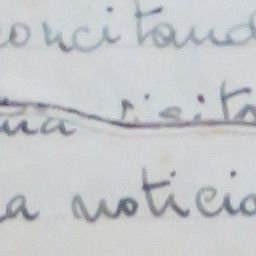 concitand
na visita
a noticia